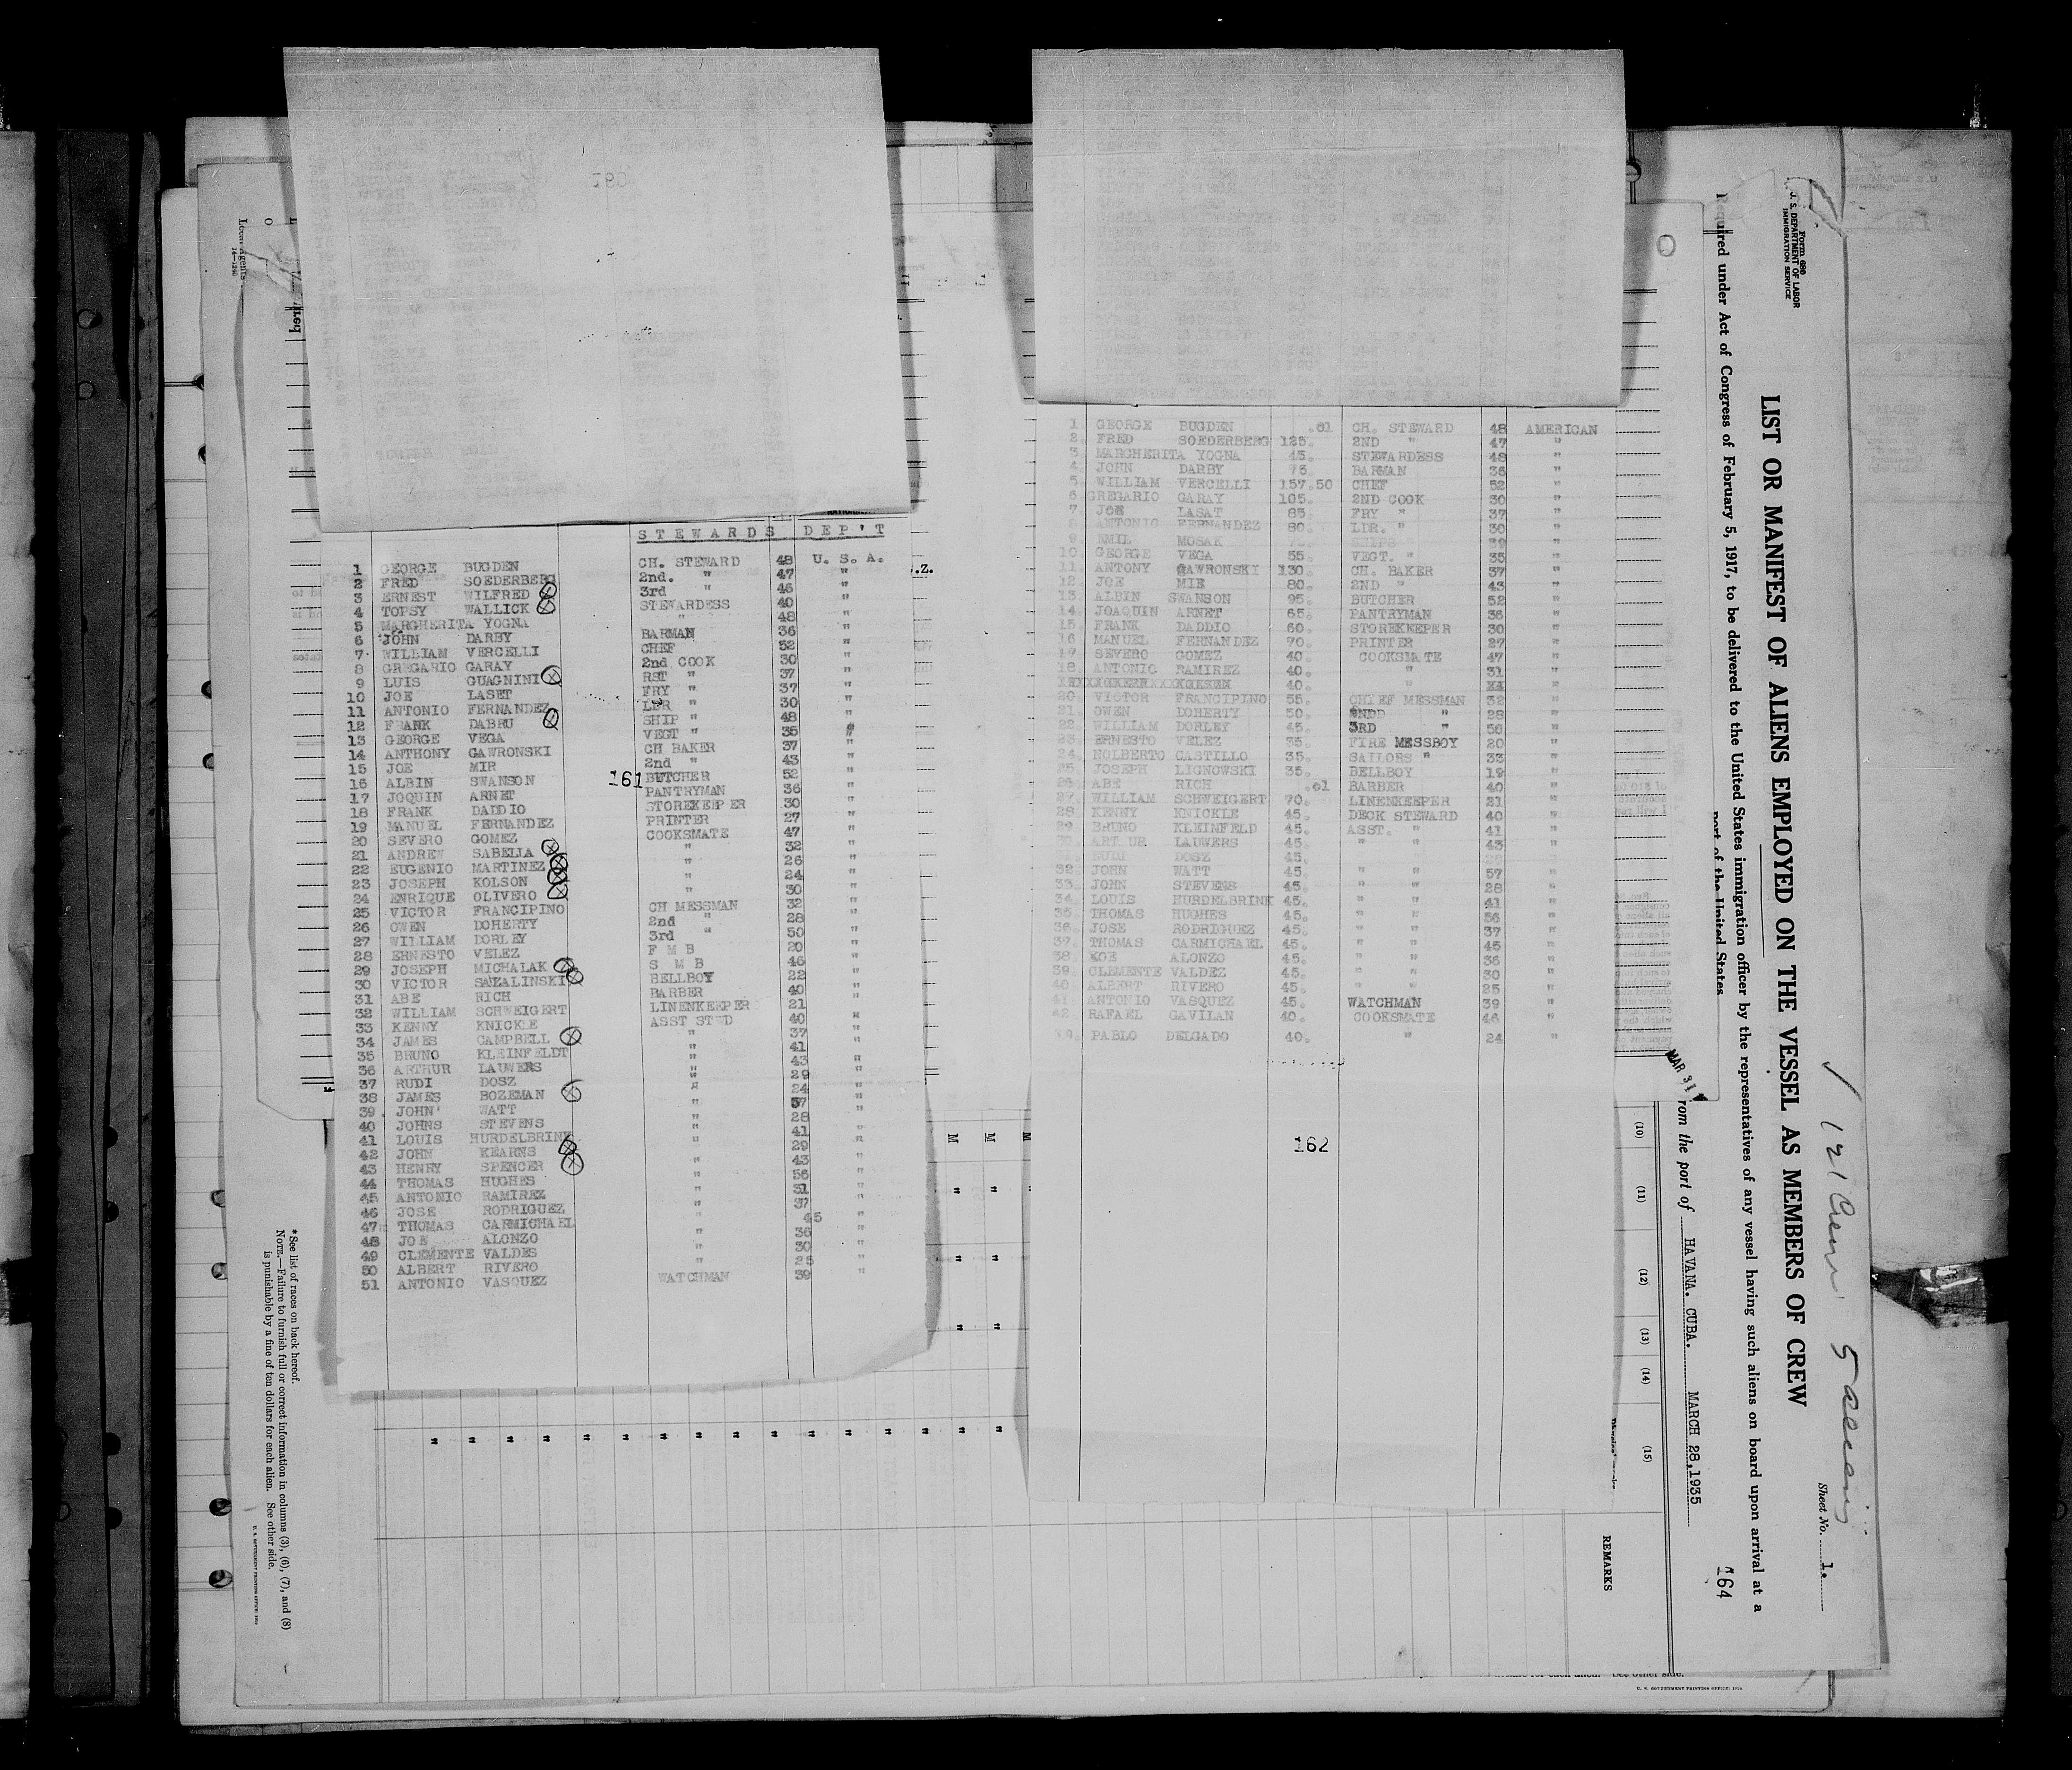 S T E W A R D S   D E P ' T
1 GEORGE BUGDEN CH. STEWARD 48 U. S. A.
2 FRED SOEDERBERG 2nd. " 47 "
3 ERNEST WILFRED 3rd " 46 "
4 TOPSY WALLICK STEWARDESS 40 "
5 MARGHERITA YOGNA " 48 "
6 JOHN DARBY BARMAN 36 "
7 WILLIAM VERCELLI CHEF 52 "
8 GREGARIO GARAY 2nd COOK 30 "
9 LUIS GUAGNINI RST " 37 "
10 JOE LASET FRY " 37 "
11 ANTONIO FERNANDEZ LDR " 30 "
12 FRANK DABRU SHIP " 48 "
13 GEORGE VEGA VEGT " 35 "
14 ANTHONY GAWRONSKI CH BAKER 37 "
15 JOE MIR 2nd " 43 "
16 ALBIN SWANSON BUTCHER 52 "
17 JOQUIN ARNET PANTRYMAN 36 "
18 FRANK DADDIO STOREKEEPER 30 "
19 MANUEL FERNANDEZ PRINTER 27 "
20 SEVERO GOMEZ COOKSMATE 47 "
21 ANDREW SABELJA " 32 "
22 EUGENIO MARTINEZ " 26 "
23 JOSEPH KOLSON " 24 "
24 ENRIQUE OLIVERO " 30 "
25 VICTOR FRANCIPINO CH MESSMAN 32 "
26 OWEN DOHERTY 2nd " 28 "
27 WILLIAM DORLEY 3rd " 50 "
28 ERNESTO VELEZ F M B 20 "
29 JOSEPH MICHALAK S M B 46 "
30 VICTOR SAZALINSKI BELLBOY 22 "
31 ABE RICH BARBER 40 "
32 WILLIAM SCHWEIGERT LINENKEEPER 21 "
33 KENNY KNICKLE ASST STWD 40 "
34 JAMES CAMPBELL " 37 "
35 BRUNO KLEINFELDT " 41 "
36 ARTHUR LAUWERS " 43 "
37 RUDI DOSZ " 29 "
38 JAMES BOZEMAN " 24 "
39 JOHN WATT " 57 "
40 JOHNS STEVENS " 28 "
41 LOUIS HURDELBRINK " 41 "
42 JOHN KEARNS " 29 "
43 HENRY SPENCER " 43 "
44 THOMAS HUGHES " 56 "
45 ANTONIO RAMIREZ " 31 "
46 JOSE RODRIGUEZ " 37 "
47 THOMAS CARMICHAEL " 45 "
48 JOE ALONZO " 36 "
49 CLEMENTE VALDES " 30 "
50 ALBERT RIVERO " 25 "
51 ANTONIO VASQUEZ WATCHMAN 39 "
161
1. GEORGE BUGDEN .01 CH. STEWARD 48 AMERICAN
2 FRED SOEDERBERG 125. 2ND " 47 "
3 MARGHERITA YOGNA 45. STEWARDESS 48 "
4. JOHN DARBY 75. BARMAN 36 "
5 WILLIAM VERCELLI 157.50 CHEF 52 "
6 GREGARIO GARAY 105. 2ND COOK 30 "
7 JOE LASAT 85. FRY " 37 "
8 ANTONIO FERNANDEZ 80. LDR. " 30 "
9 EMIL MOSAK 39 "
10 GEORGE VEGA 55. VEGT. " 35 "
11 ANTONY GAWRONSKI 130. CH. BAKER 37 "
12 JOE MIR 80. 2ND " 43 "
13 ALBIN SWANSON 95. BUTCHER 52 "
14 JOAQUIN ARNET 65. PANTRYMAN 36 "
15 FRANK DADDIO 60. STOREKEEPER 30 "
16 MANUEL FERNANDEZ 70. PRINTER 27 "
17 SEVERO GOMEZ 40. COOKSMATE 47 "
18 ANTONIO RAMIREZ 40. " 31 "
40. "
20. VICTOR FRANCIPINO 55. CHIEF MESSMAN 32 "
21. OWEN DOHERTY 50. 2ND " 28 "
22. WILLIAM DORLEY 45. 3RD " 50 "
23 ERNESTO VELEZ 35. FIRE MESSBOY 20 "
24 NOLBERTO CASTILLO 35. SAILORS " 33 "
25 JOSEPH LIGNOWSKI 35. BELLBOY 19 "
26 ABE RICH .01 BARBER 40 "
27 WILLIAM SCHWEIGERT 70. LINENKEEPER 21 "
28 KENNY KNICKLE 45. DECK STEWARD 40 "
29 BRUNO KLEINFELD 45. ASST. " 41 "
ART UR LAUWERS 45. " " 43 "
RUDI DOSZ 45.
32. JOHN WATT 45. " " 57 "
33. JOHN STEVENS 45. " " 28 "
34 LOUIS HURDELBRINK 45. " " 41 "
35. THOMAS HUGHES 45. " " 56 "
36. JOSE RODRIGUEZ 45. " " 37 "
37. THOMAS CARMICHAEL 45. " " 45 "
38. KOE ALONZO 45. " " 36 "
39. CLEMENTE VALDEZ 45. " " 30 "
40 ALBERT RIVERO 45. " " 25 "
41 ANTONIO VASQUEZ 45. WATCHMAN 39 "
42 RAFAEL GAVILAN 40. COOKSMATE 46 "
PABLO DELGADO 40. " 24 "
162
Form 680
U. S. DEPARTMENT OF LABOR
IMMIGRATION SERVICE
LIST OR MANIFEST OF ALIENS EMPLOYED ON THE VESSEL AS MEMBERS OF CREW
Required under Act of Congress of February 5, 1917, to be delivered to the United States immigration officer by the representatives of any vessel having such aliens on board upon arrival at a
port of the United States
✓ 121 Crew 5 aliens
Sheet No. 1.
164
MAR 31
rom the port of HAVANA. CUBA. MARCH 28,1935
(10) (11) (12) (13) (14) (15)
REMARKS
M M M
* See list of races on back hereof.
NOTE.—Failure to furnish full or correct information in columns (3), (6), (7), and (8)
is punishable by a fine of ten dollars for each alien. See other side.
U. S. GOVERNMENT PRINTING OFFICE